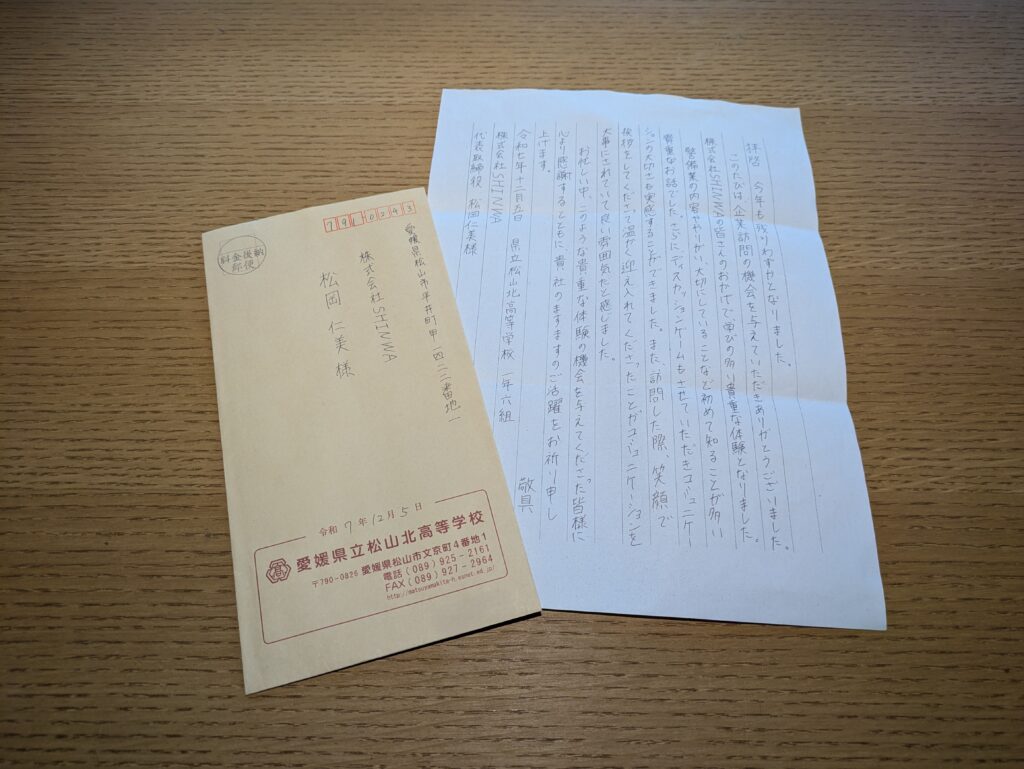 料金後納
郵便
7910243
愛媛県松山市平井町甲一四二二番地一
株式会社SHINWA
松岡 仁美 様
令和7年12月5日
愛媛県立松山北高等学校
〒790-0826 愛媛県松山市文京町4番地1
電話(089)925-2161
FAX(089)927-2964
http://matsuyamakita-h.esnet.ed.jp/
拝啓 今年も残りわずかとなりました。
このたびは、企業訪問の機会を与えていただきありがとうございました。
株式会社SHINWAの皆さんのおかげで、学びの多い貴重な体験となりました。
警備業の内容ややりがい、大切にしていることなど初めて知ることが多い
貴重なお話でした。さらにディスカッションゲームもさせていただきコミュニケー
ションの大切さも実感することができました。また、訪問した際、笑顔で
挨拶をしてくださって温かく迎え入れてくださったことがコミュニケーションを
大事にされていて良い雰囲気だと感じました。
お忙しい中、このような貴重な体験の機会を与えてくださった皆様に
心より感謝するとともに、貴社のますますのご活躍をお祈り申し
上げます。
敬具
令和七年十二月五日 県立松山北高等学校 一年六組
株式会社SHINWA
代表取締役 松岡仁美様